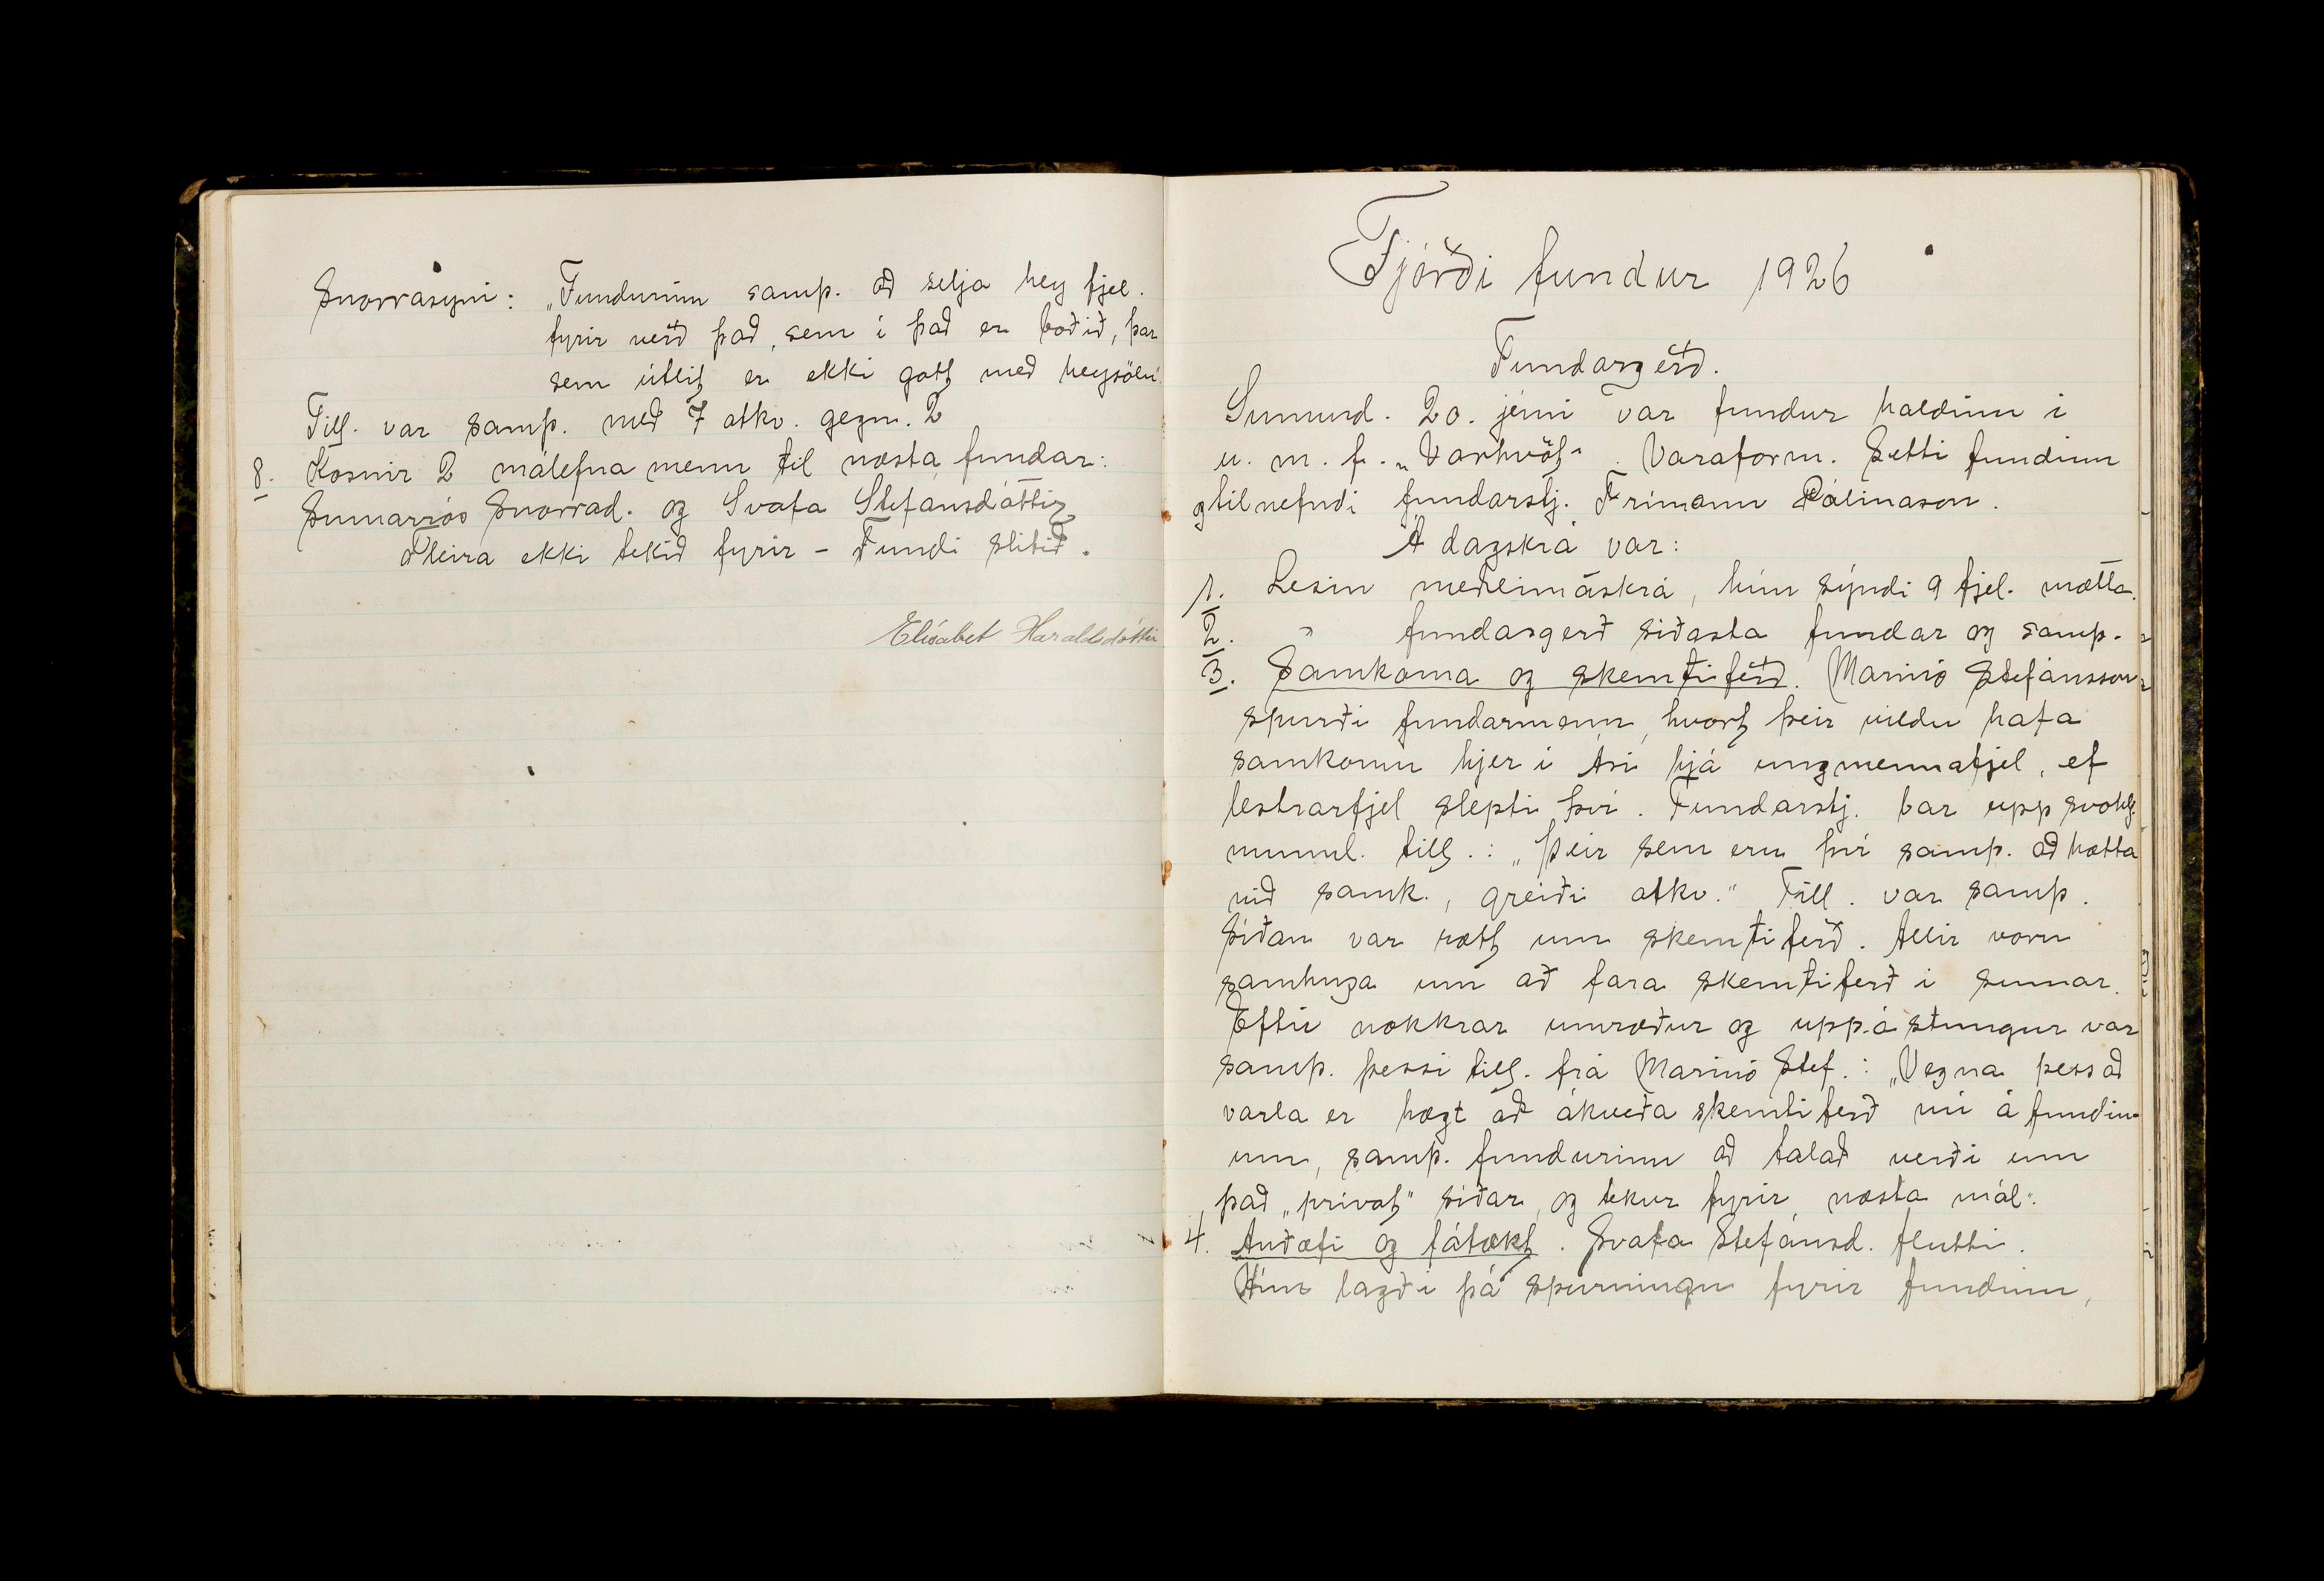 Snorrasyni: „Fundurinn samþ. að selja hey fjel.
fyrir verð það, sem í það er boðið, þar
sem útlit er ekki gott með heysölu“
Till. var samþ. með 7 atkv. gegn. 2
8. Kosnir 2 málefnamenn til næsta fundar:
Sumarrós Snorrad. og Svafa Stefánsdóttir
Fleira ekki tekið fyrir - Fundi slitið.
Elísabet Haraldsdóttir
Fjórði fundur 1926
Fundargerð.
Sunnud. 20. júní var fundur haldinn í
u. m. f. „Varhvöt“ Varaform. Setti fundinn
og tilnefndi fundarstj. Frímann Pálmason.
Á dagskrá var:
1. Lesin meðlimaskrá, hún sýndi 9 fjel. mætta.
2. " fundargerð síðasta fundar og samþ.
3. Samkoma og skemtiferð. Marinó Stefánsson
spurði fundarmenn, hvort þeir vildu hafa
samkomu hjer í Ási hjá ungmennafjel, ef
lestrarfjel slepti því. Fundarstj. bar upp svohlj.
munnl. till.: „Þeir sem eru því samþ. að hætta
við samk., greiði atkv.“ Till. var samþ.
Síðan var rætt um skemtiferð. Allir voru
samhuga um að fara skemtiferð í sumar.
Eftir nokkrar umræður og uppástungur var
samþ. þessi till. frá Marinó Stef.: „Vegna þess að
varla er hægt að ákveða skemtiferð nú á fundin-
um, samþ. fundurinn að talað verði um
það „privat“ síðar, og tekur fyrir næsta mál“.
4. Auðæfi og fátækt. Svafa Stefánsd. flutti.
Hún lagði þá spurningu fyrir fundinn,